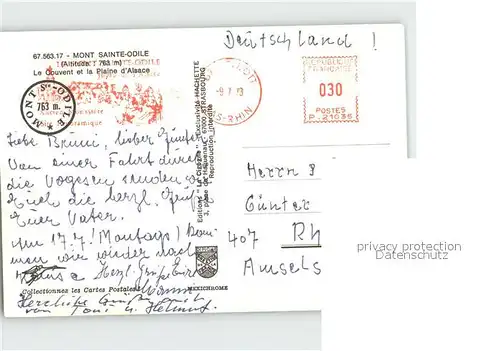 67.563.17 - MONT SAINTE-ODILE
(Altitude: 763 m)
Le Couvent et la Plaine d'Alsace
Deutschland !
MONT Ste ODILE
763 m.
-9 7 73
S-RHIN
REPUBLIQUE
FRANÇAISE
030
POSTES
P.21035
Editions "La Cigogne"
Exclusivité HACHETTE
3, place de Haguenau, 67000 STRASBOURG
Reproduction interdite
Liebe Brüni, lieber Günter
Von einer Fahrt durch
die Vogesen senden wir
Euch die herzl. Grüße
Euer Vater.
Am 17.7! (Montags) kom
men wir wieder nach
Herzl. Grüße Eure
Mammi
Herzliche Grüße auch
von Toni u. Helmut
Collectionnez les Cartes Postales
MEXICHROME
Herrn
Günter
407 Rh
Amsels
privacy protection
Datenschutz